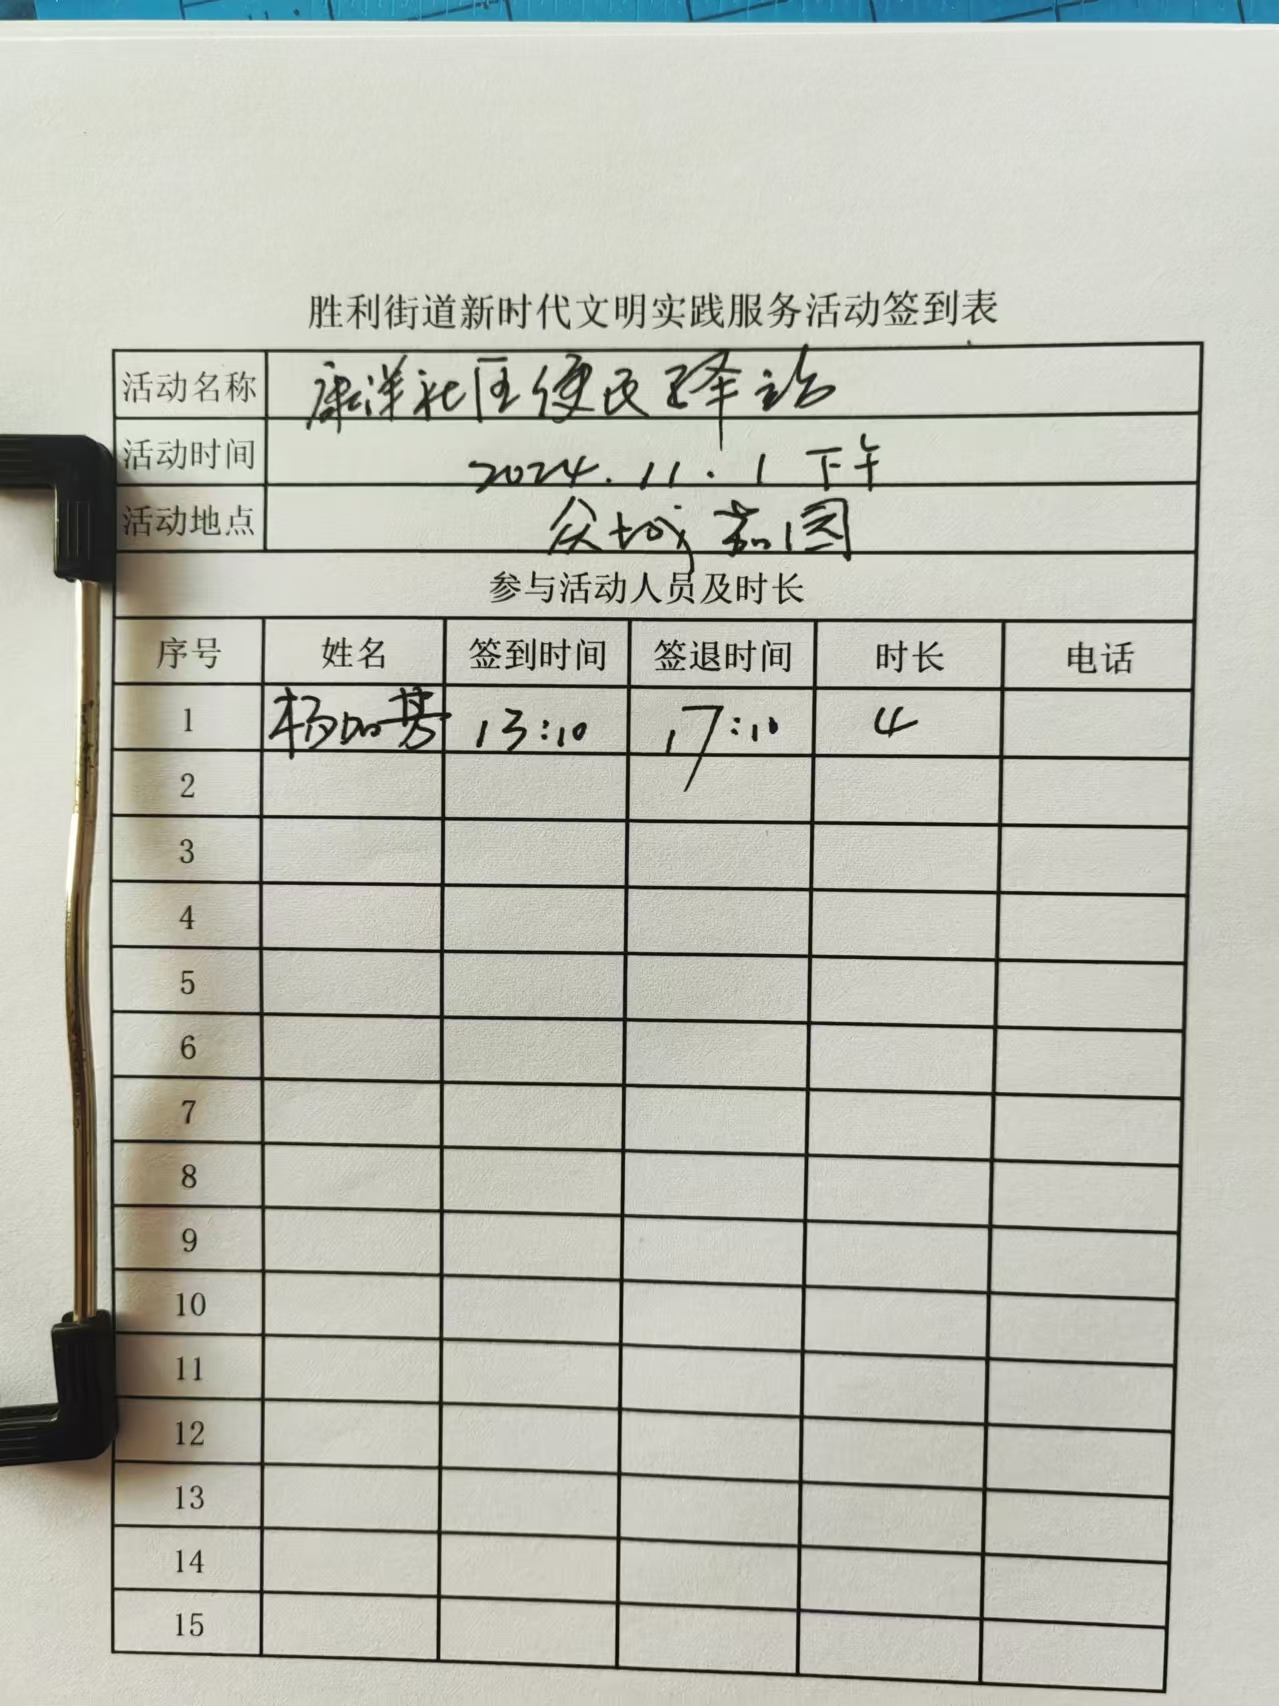 胜利街道新时代文明实践服务活动签到表
活动名称 康洋社区便民驿站
活动时间 2024.11.1 下午
活动地点 众城嘉园
参与活动人员及时长
序号 姓名 签到时间 签退时间 时长 电话
1 杨 13:10 17:10 4
2
3
4
5
6
7
8
9
10
11
12
13
14
15